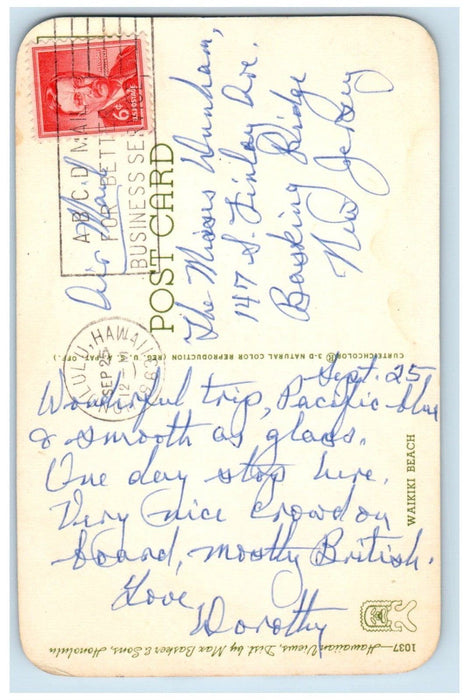 6¢
U.S. POSTAGE
A B C D MAIL
FOR BETTER
BUSINESS SER
Air Mail
HONOLULU, HAWAII
SEP 25
12 - M
1963
POST CARD
The Misses Dunham,
147 S. Finley Ave.
Basking Ridge
New Jersey
CURTEICHCOLOR® 3-D NATURAL COLOR REPRODUCTION (REG. U.S.A. PAT. OFF.)
Sept. 25
Wonderful trip, Pacific blue
& smooth as glass.
One day stop here.
Very nice crowd on
board, mostly British.
Love,
Dorothy
WAIKIKI BEACH
1037—Hawaiian Views, Dist. by Max Basker & Sons, Honolulu